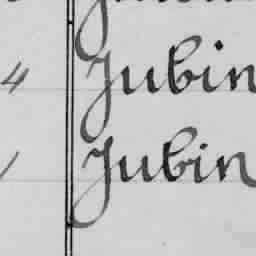 4 Jubin
Jubin